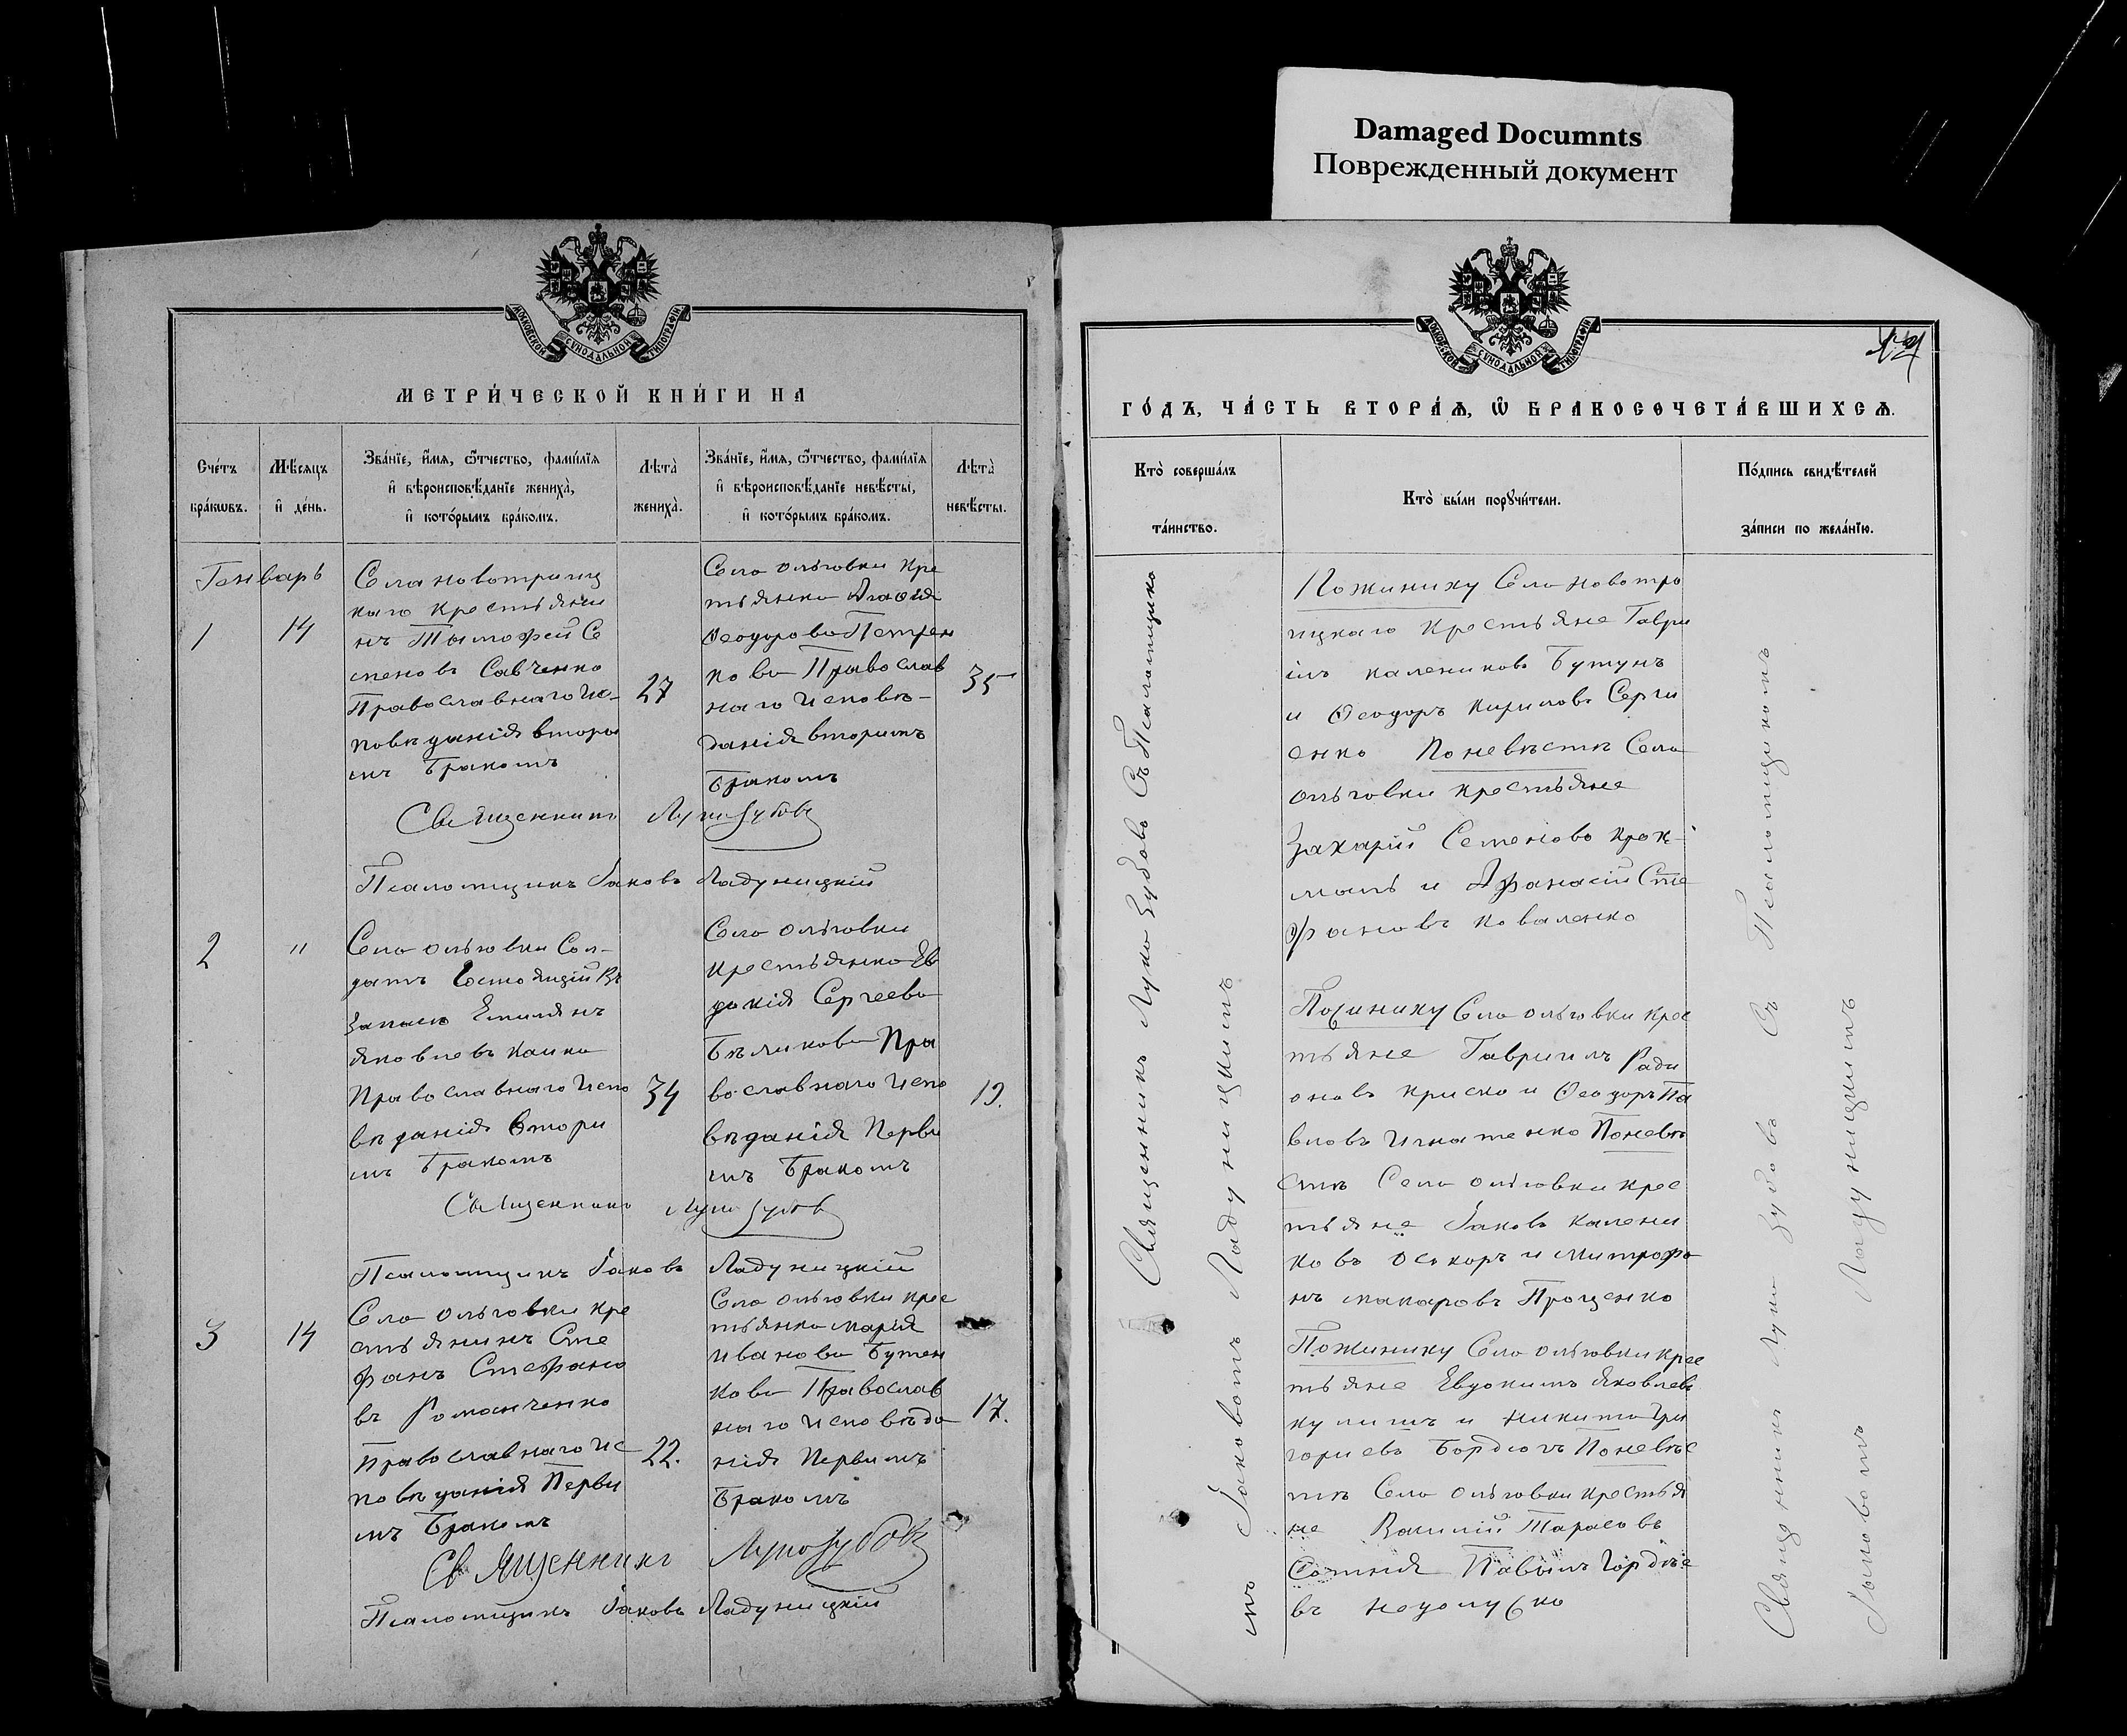 Damaged Documnts
Поврежденный документ
МОСКОВСКОЙ СУНОДАЛЬНОЙ ТИПОГРАФІИ
МЕТРИ́ЧЕСКОЙ КНИ́ГИ НА
Сче́тъ бра́кωвъ.
Мѣ́сяцъ и҆ де́нь.
Зва́нїе, и҆́мя, ѻ҆́тчество, фами́лїя
и҆ вѣроисповѣ́данїе жениха̀,
и҆ кото́рымъ бра́комъ.
Лѣта̀ жениха̀.
Зва́нїе, и҆́мя, ѻ҆́тчество, фами́лїя
и҆ вѣроисповѣ́данїе невѣ́сты,
и҆ кото́рымъ бра́комъ.
Лѣта̀ невѣ́сты.
Генварь
1
14
Села новотроиц
каго крестьяни
нъ Тымофей Се
меновъ Савченко
Православнаго Ис-
повѣданія вторы
мъ Бракомъ
27
Села Ольговки кре
стьянка
Ѳеодорова Петрен
кова Православ
наго Исповѣ-
данія вторымъ
Бракомъ
35
Священникъ Лука Зубовъ
Псаломщикъ Іаковъ Ладуницкій
2
"
Села Ольговки Сол-
датъ Состоящій Въ
Запасѣ Емилянъ
Яковлевъ
Православнаго Испо
вѣданія Втори
мъ Бракомъ
34
Села Ольговки
крестьянка Ев
докія Сергеева
Бѣликова Пра
вославнаго Испо
вѣданія Перви
мъ Бракомъ
19.
Священникъ Лука Зубовъ
Псаломщикъ Іаковъ Ладуницкій
3
14
Села Ольговки кре
стьянинъ Сте
фанъ Стефано
въ Романченко
Православнаго Ис
повѣданія Перви
мъ Бракомъ
22.
Села Ольговки крес
тьянка Марія
Иванова Бутен
кова Православ
наго Исповѣда
нія Первимъ
Бракомъ
17.
Священникъ Лука Зубовъ
Псаломщикъ Іаковъ Ладуницкій
МОСКОВСКОЙ СУНОДАЛЬНОЙ ТИПОГРАФІИ
ГО́ДЪ, ЧА́СТЬ ВТОРА́Я, Ѽ БРАКОСОЧЕТА́ВШИХСЯ.
Кто̀ соверша́лъ
та́инство.
Кто̀ бы́ли порꙋчи́тели.
По́дпись свидѣ́телей
за́писи по жела́нїю.
Священникъ Лука Зубовъ Съ Псаломщико
мъ Іаковомъ Ладуницкимъ
Пожиниху Села новотро
ицкаго крестьяне Гаври
илъ калениковъ Бутунъ
и Ѳеодоръ Кириловъ Серги
енко Поневѣстѣ Села
Ольговки крестьяне
Захарій Семеновъ Крох-
маль и Афанасій Сте
фановъ Коваленко
Пожиниху Села Ольговки крес
тьяне Гавриилъ Ради
оновъ Криско и Ѳеодоръ Па
вловъ Игнатенко Поневѣ
стѣ Села Ольговки крес
тьяне Іаковъ Калени
ковъ и Митрофа
нъ Макаровъ Проценко
Пожиниху Села Ольговки крес
тьяне Евдокимъ Яковлевъ
и Никита Гри
горіевъ Поневѣс
тѣ Села Ольговки крестья
не Василій Тарасовъ
Сотния Павылъ Гордѣе
въ
Священникъ Лука Зубовъ Съ Псаломщикомъ
Іаковомъ Ладуницкимъ